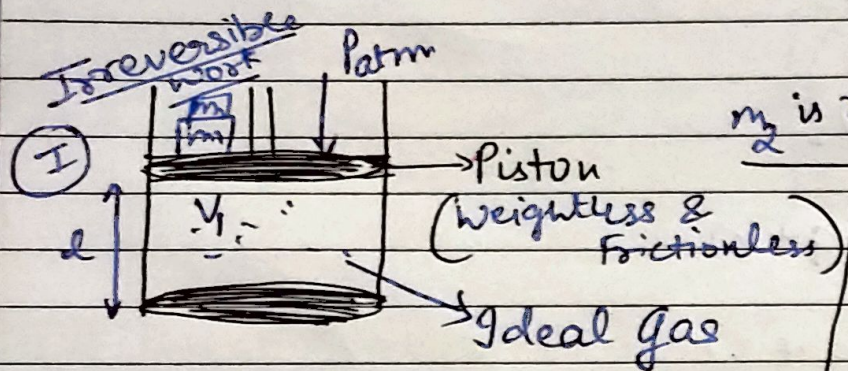 Irreversible
work
Patm
m
m
m2 is
I
Piston
(Weightless &
Frictionless)
V1
l
Ideal gas